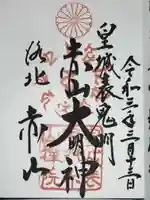 令和三年三月十三日
皇城表鬼門
赤山大明神
洛北 赤山